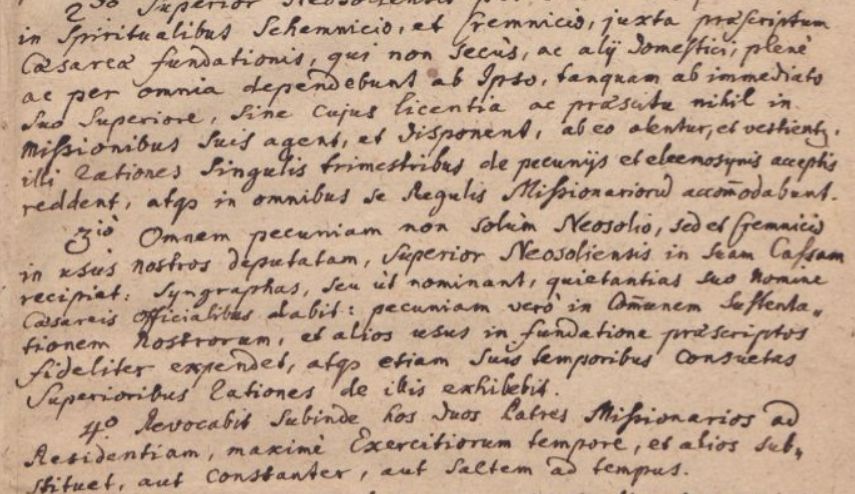 2do Superior Neosoliensis
in Spiritualibus Schemnicio, et Cremnicio, juxta præscriptum
Cæsareæ fundationis, qui non secùs, ac alij domestici, plenè
ac per omnia dependebunt ab Ipso, tanquam ab immediato
suo Superiore, sine cujus licentia ac præscitu nihil in
Missionibus suis agent, et disponent, ab eo alentur, et vestientr,
illi rationes singulis trimestribus de pecunijs et eleemosynis acceptis
reddent, atqs in omnibus se Regulis Missionariorū accom̄odabunt.
3tiò Omnem pecuniam non solùm Neosolio, sed et Cremnicio
in usus nostros deputatam, Superior Neosoliensis in suam Cassam
recipiet: Syngraphas, seu út nominant, quietantias suo nomine
Cæsareis officialibus dabit: pecuniam verò in Com̄unem sustenta„
tionem nostrorum, et alios usus in fundatione præscriptos
fideliter expendet, atqs etiam suis temporibus consuetas
Superioribus rationes de illis exhibebit.
4to Revocabit subinde hos duos Patres Missionarios ad
Residentiam, maximè Exercitiorum tempore, et alios sub„
stituet, aut constanter, aut saltem ad tempus.